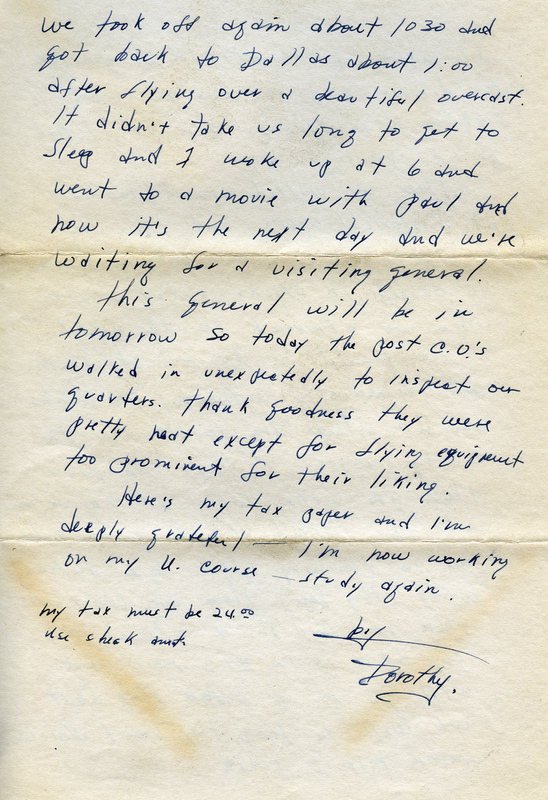 we took off again about 1030 and
got back to Dallas about 1:00
after flying over a beautiful overcast.
It didn't take us long to get to
sleep and I woke up at 6 and
went to a movie with Paul and
now it's the next day and we're
waiting for a visiting general.
This General will be in
tomorrow so today the post C.O.'s
walked in unexpectedly to inspect our
quarters. Thank goodness they were
pretty neat except for flying equipment
too prominent for their liking.
Here's my tax paper and I'm
deeply grateful — I'm now working
on my U. course — study again.
my tax must be 24.00
Use check
by
Dorothy.